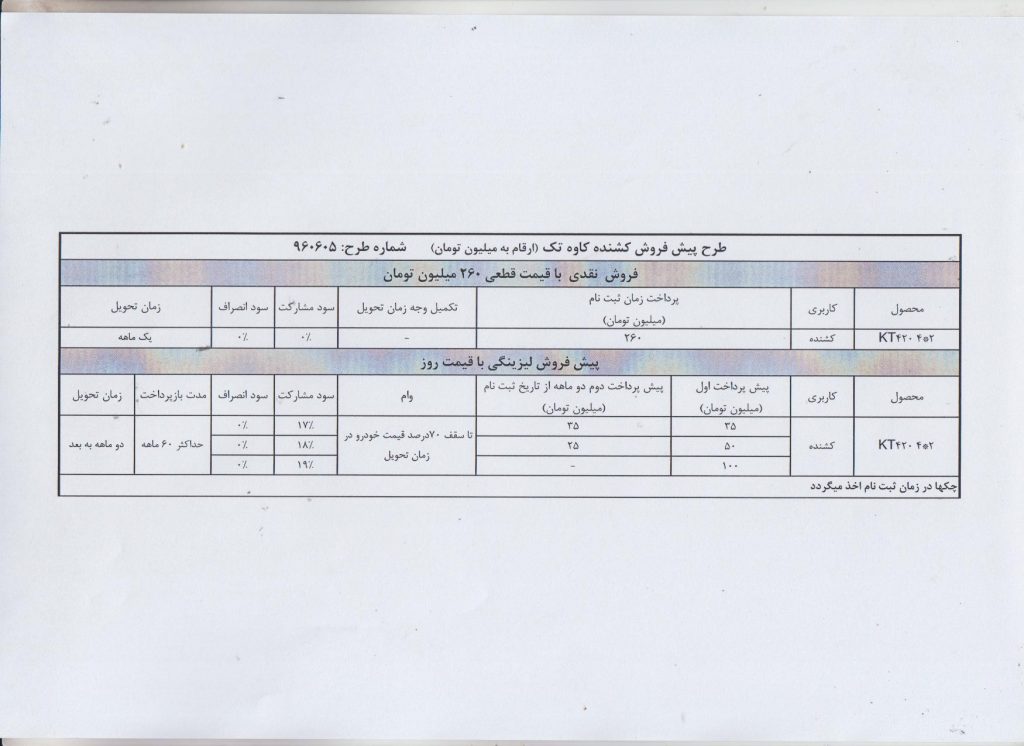 طرح پیش فروش کشنده کاوه تک (ارقام به میلیون تومان) شماره طرح: ۹۶۰۶۰۵
فروش نقدی با قیمت قطعی ۲۶۰ میلیون تومان
محصول کاربری پرداخت زمان ثبت نام (میلیون تومان) تکمیل وجه زمان تحویل سود مشارکت سود انصراف زمان تحویل
KT۴۲۰ ۴*۲ کشنده ۲۶۰ - ۰٪ ۰٪ یک ماهه
پیش فروش لیزینگی با قیمت روز
محصول کاربری پیش پرداخت اول (میلیون تومان) پیش پرداخت دوم دو ماهه از تاریخ ثبت نام (میلیون تومان) وام سود مشارکت سود انصراف مدت بازپرداخت زمان تحویل
KT۴۲۰ ۴*۲ کشنده ۳۵ ۳۵ تا سقف ۷۰درصد قیمت خودرو در زمان تحویل ۱۷٪ ۰٪ حداکثر ۶۰ ماهه دو ماهه به بعد
۵۰ ۲۵ ۱۸٪ ۰٪
۱۰۰ - ۱۹٪ ۰٪
چکها در زمان ثبت نام اخذ میگردد